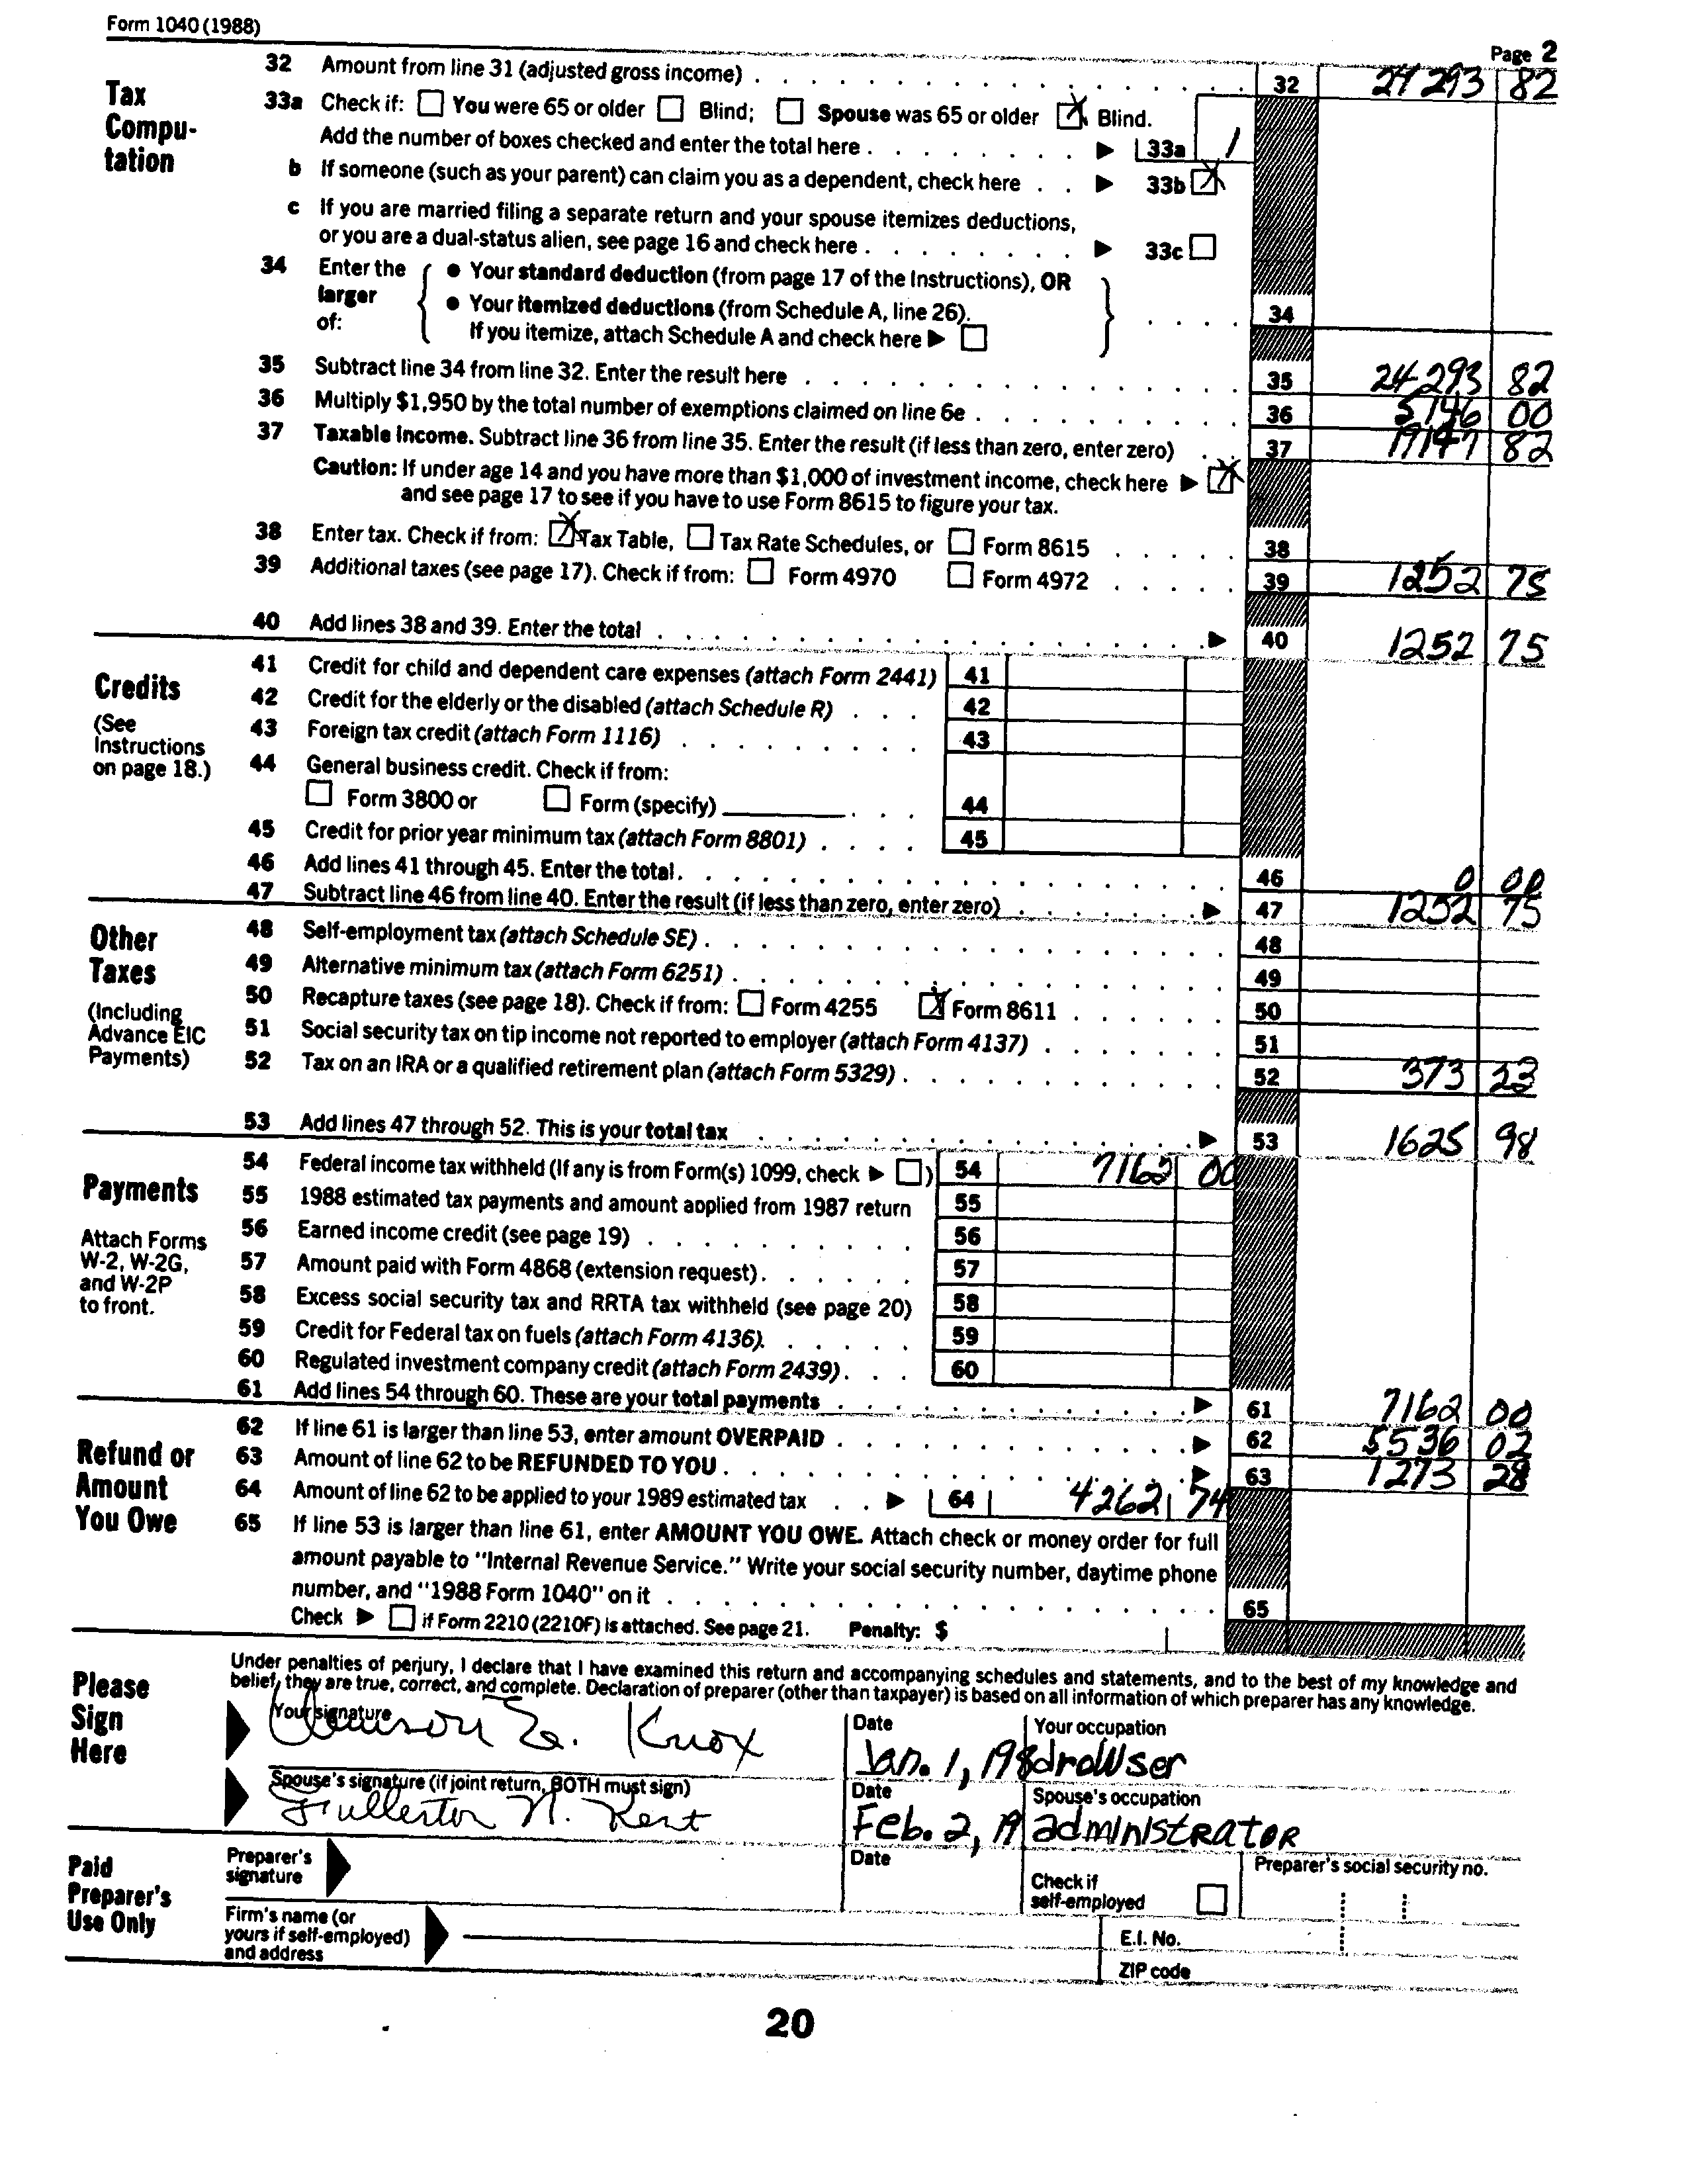 Form 1040 (1988)
Page 2
Tax Compu-tation
32 Amount from line 31 (adjusted gross income) . . . . . . . . . . . . . . . 32 24 293 82
33a Check if: ☐ You were 65 or older ☐ Blind; ☐ Spouse was 65 or older ☒ Blind.
Add the number of boxes checked and enter the total here . . . . . . . . ▶ 33a 1
b If someone (such as your parent) can claim you as a dependent, check here . . ▶ 33b ☒
c If you are married filing a separate return and your spouse itemizes deductions,
or you are a dual-status alien, see page 16 and check here . . . . . . . . ▶ 33c ☐
34 Enter the larger of: { ● Your standard deduction (from page 17 of the Instructions), OR
● Your itemized deductions (from Schedule A, line 26).
If you itemize, attach Schedule A and check here ▶ ☐ } . . . . 34
35 Subtract line 34 from line 32. Enter the result here . . . . . . . . . . . . . 35 24 293 82
36 Multiply $1,950 by the total number of exemptions claimed on line 6e . . . . . . . . 36 5146 00
37 Taxable income. Subtract line 36 from line 35. Enter the result (if less than zero, enter zero) . . 37 19147 82
Caution: If under age 14 and you have more than $1,000 of investment income, check here ▶ ☒
and see page 17 to see if you have to use Form 8615 to figure your tax.
38 Enter tax. Check if from: ☒ Tax Table, ☐ Tax Rate Schedules, or ☐ Form 8615 . . . . . 38
39 Additional taxes (see page 17). Check if from: ☐ Form 4970 ☐ Form 4972 . . . . . 39 1252 75
40 Add lines 38 and 39. Enter the total . . . . . . . . . . . . . . . . ▶ 40 1252 75
Credits
(See Instructions on page 18.)
41 Credit for child and dependent care expenses (attach Form 2441) 41
42 Credit for the elderly or the disabled (attach Schedule R) . . . 42
43 Foreign tax credit (attach Form 1116) . . . . . . . . . 43
44 General business credit. Check if from:
☐ Form 3800 or ☐ Form (specify) . . . 44
45 Credit for prior year minimum tax (attach Form 8801) . . . . 45
46 Add lines 41 through 45. Enter the total. . . . . . . . . . . . . . . . 46 0 00
47 Subtract line 46 from line 40. Enter the result (if less than zero, enter zero) . . . . . . . ▶ 47 1252 75
Other Taxes
(Including Advance EIC Payments)
48 Self-employment tax (attach Schedule SE) . . . . . . . . . . . . . . . 48
49 Alternative minimum tax (attach Form 6251) . . . . . . . . . . . . . . . 49
50 Recapture taxes (see page 18). Check if from: ☐ Form 4255 ☒ Form 8611 . . . . . . 50
51 Social security tax on tip income not reported to employer (attach Form 4137) . . . . . . . 51
52 Tax on an IRA or a qualified retirement plan (attach Form 5329) . . . . . . . . . . . 52 373 23
53 Add lines 47 through 52. This is your total tax . . . . . . . . . . . . . ▶ 53 1625 98
Payments
Attach Forms W-2, W-2G, and W-2P to front.
54 Federal income tax withheld (If any is from Form(s) 1099, check ▶ ☐) 54 7162 00
55 1988 estimated tax payments and amount applied from 1987 return 55
56 Earned income credit (see page 19) . . . . . . . . . . 56
57 Amount paid with Form 4868 (extension request). . . . . . 57
58 Excess social security tax and RRTA tax withheld (see page 20) 58
59 Credit for Federal tax on fuels (attach Form 4136). . . . . . 59
60 Regulated investment company credit (attach Form 2439). . . 60
61 Add lines 54 through 60. These are your total payments . . . . . . . . . . . ▶ 61 7162 00
Refund or Amount You Owe
62 If line 61 is larger than line 53, enter amount OVERPAID . . . . . . . . . . . ▶ 62 5536 02
63 Amount of line 62 to be REFUNDED TO YOU . . . . . . . . . . . . . . ▶ 63 1273 28
64 Amount of line 62 to be applied to your 1989 estimated tax . . ▶ 64 4262 74
65 If line 53 is larger than line 61, enter AMOUNT YOU OWE. Attach check or money order for full
amount payable to "Internal Revenue Service." Write your social security number, daytime phone
number, and "1988 Form 1040" on it . . . . . . . . . . . . . . . . . 65
Check ▶ ☐ if Form 2210 (2210F) is attached. See page 21. Penalty: $
Please Sign Here
Under penalties of perjury, I declare that I have examined this return and accompanying schedules and statements, and to the best of my knowledge and
belief, they are true, correct, and complete. Declaration of preparer (other than taxpayer) is based on all information of which preparer has any knowledge.
Your signature E. Knox
Date Jan. 1, 198
Your occupation drowser
Spouse's signature (if joint return, BOTH must sign) Fullerton N. Kent
Date Feb. 2, 19
Spouse's occupation administrator
Paid Preparer's Use Only
Preparer's signature
Date
Check if self-employed ☐
Preparer's social security no.
Firm's name (or yours if self-employed) and address
E.I. No.
ZIP code
20